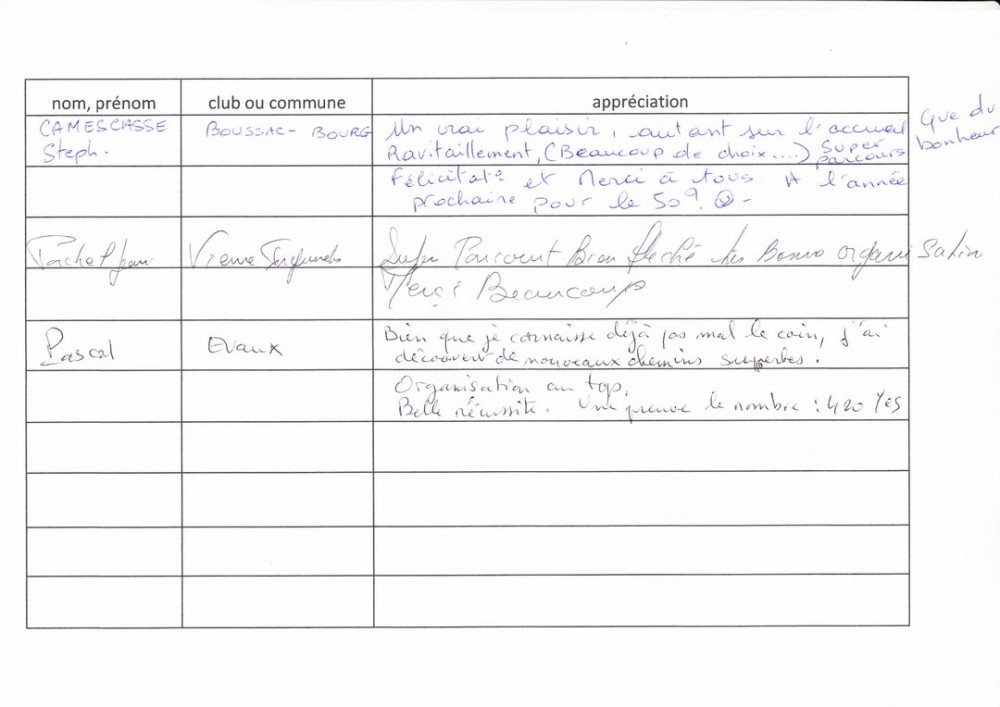 nom, prénom club ou commune appréciation
CAMESCASSE BOUSSAC-BOURG Un vrai plaisir, autant sur l'accueil Que du
Steph. Ravitaillement, (Beaucoup de choix....) Super parcours bonheur
Félicitat° et Merci à tous. A l'année
prochaine pour le 50?. ☺-
Vienne Parcourt Bien fleché très Bonne organisation
Merçi Beaucoup
Pascal Evaux Bien que je connaisse déjà pas mal le coin, j'ai
découvert de nouveaux chemins superbes.
Organisation au top.
Belle réussite. Une preuve le nombre : 420 Yes